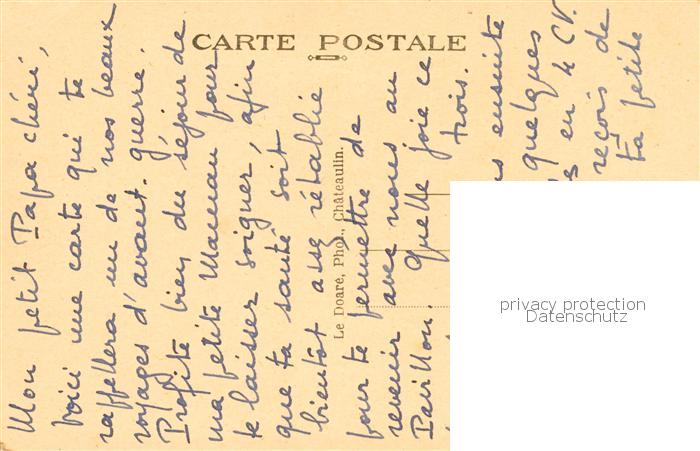 CARTE POSTALE
Mon petit Papa chéri,
Voici une carte qui te
rappellera un de nos beaux
voyages d'avant-guerre.
Profite bien du séjour de
ma petite Maman pour
te laisser soigner, afin
que ta santé soit
bientôt assez rétablie
pour te permettre de
revenir avec nous au
Pavillon. Quelle joie ce
trois.
ensuite
quelques
en 4 CV.
reçois de
ta petite
Le Doare, Phot., Châteaulin.
privacy protection
Datenschutz